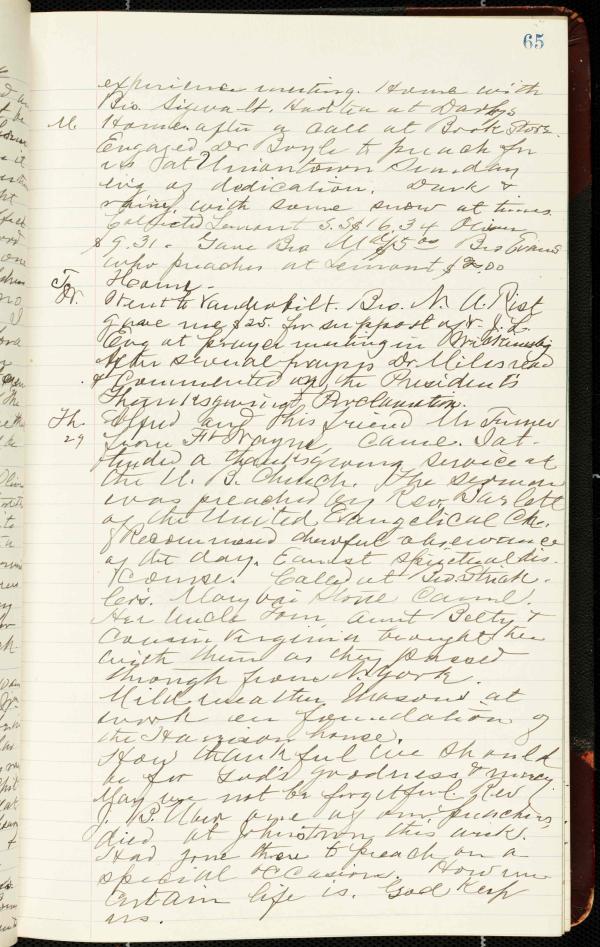 65
experience meeting. Home with
Bro. Sigwalt. Had tea at Darby's
M. Home after a call at Book Store.
Engaged Dr Boyle to preach for
us at Uniontown Sunday
evg of dedication. Dark &
rainy, with some snow at times.
Collected Lemont S.S $16.34 Oliver
$9.31. Gave Bro 5 00 Bro Evans
who preaches at Lemont, $2 00
Tu. Home.
W. Went to Vanderbilt. Bro. N. A. Rist
gave me $25. for support of
Evg at prayer meeting in
After several prayers Dr. Miles read
& commented on the President's
Thanksgiving Proclamation.
Th. Alfred and his friend Mr Turner
29 from Ft Wayne, came. I at-
tended a thanksgiving service at
the U. B. Church. The sermon
was preached by Rev.
of the United Evangelical Ch.
& Recommend cheerful observance
of the day. Earnest Spiritual dis-
course. Called at Geo Strick-
ler's. Mary Stone came.
Her Uncle Tom, Aunt Betty &
Cousin Virginia brought her
with them as they passed
through from N. York.
Mild weather Masons at
work on foundation of
the Harrison house.
How thankful we should
be for God's goodness & mercy.
May we not be forgetful. Rev
J. B. one of our preachers,
died at Johnstown this week.
Had gone there to preach on a
special occasion. How un-
certain life is. God keep
us.